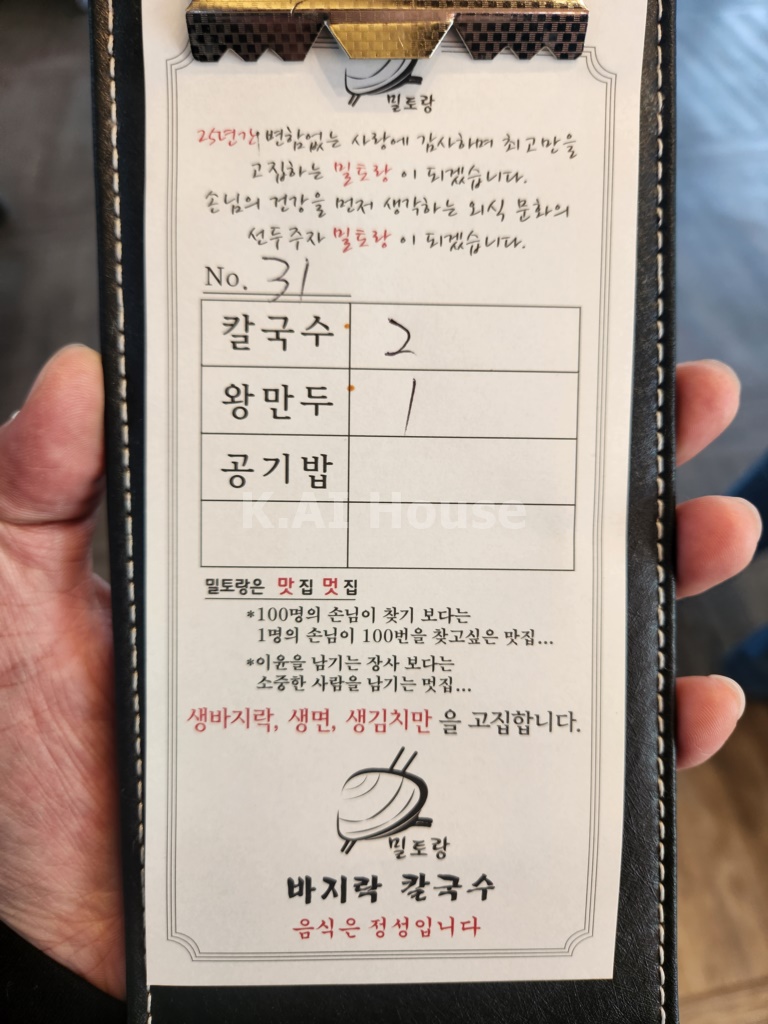 밀토랑
25년간 변함없는 사랑에 감사하며 최고만을
고집하는 밀토랑 이 되겠습니다.
손님의 건강을 먼저 생각하는 외식 문화의
선두주자 밀토랑 이 되겠습니다.
No. 31
칼국수 2
왕만두 1
공기밥
K.AI House
밀토랑은 맛집 멋집
*100명의 손님이 찾기 보다는
1명의 손님이 100번을 찾고싶은 맛집...
*이윤을 남기는 장사 보다는
소중한 사람을 남기는 멋집...
생바지락, 생면, 생김치만 을 고집합니다.
밀토랑
바지락 칼국수
음식은 정성입니다